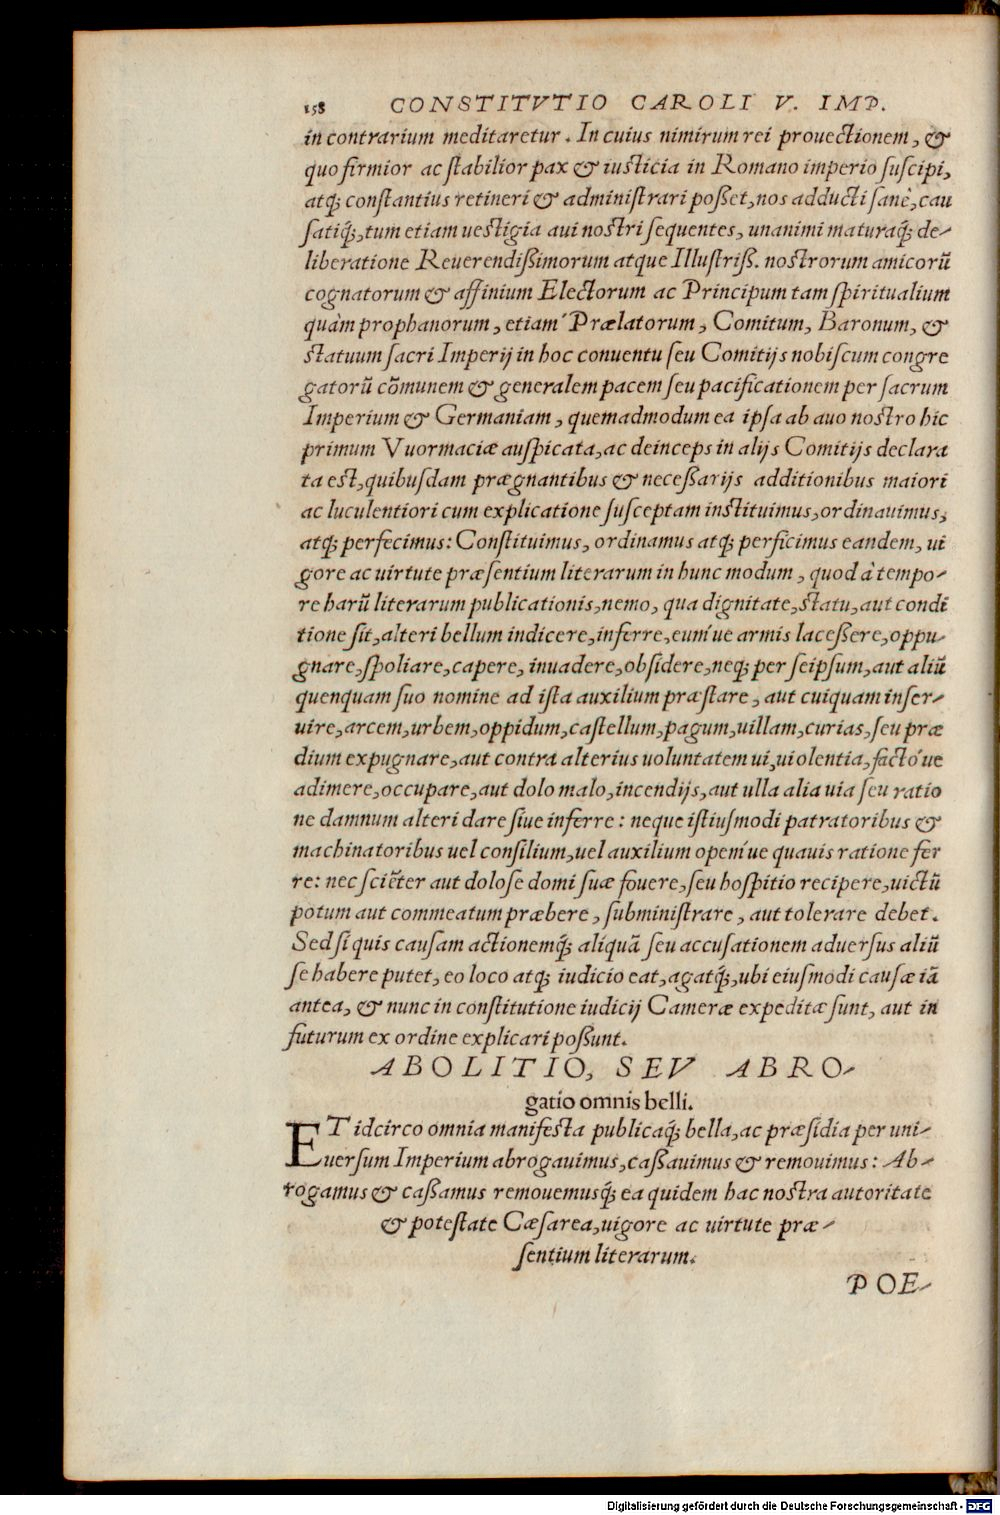 158 CONSTITVTIO CAROLI V. IMP.
in contrarium meditaretur. In cuius nimirum rei prouectionem, &
quo firmior ac stabilior pax & iusticia in Romano imperio suscipi,
atq; constantius retineri & administrari poßet, nos adducti sanè, cau
satiq́;, tum etiam uestigia aui nostri sequentes, unanimi maturaq́; de-
liberatione Reuerendißimorum atque Illustriß. nostrorum amicorũ
cognatorum & affinium Electorum ac Principum tam spiritualium
quàm prophanorum, etiam Prælatorum, Comitum, Baronum, &
statuum sacri Imperij in hoc conuentu seu Comitijs nobiscum congre
gatorũ cõmunem & generalem pacem seu pacificationem per sacrum
Imperium & Germaniam, quemadmodum ea ipsa ab auo nostro hic
primum Vuormaciæ auspicata, ac deinceps in alijs Comitijs declara
ta est, quibusdam prægnantibus & neceßarijs additionibus maiori
ac luculentiori cum explicatione susceptam instituimus, ordinauimus,
atq; perfecimus: Constituimus, ordinamus atq; perficimus eandem, ui
gore ac uirtute præsentium literarum in hunc modum, quod à tempo-
re harũ literarum publicationis, nemo, qua dignitate, statu, aut condi
tione sit, alteri bellum indicere, inferre, eum´ue armis laceßere, oppu-
gnare, spoliare, capere, inuadere, obsidere, neq; per seipsum, aut aliũ
quenquam suo nomine ad ista auxilium præstare, aut cuiquam inser-
uire, arcem, urbem, oppidum, castellum, pagum, uillam, curias, seu præ
dium expugnare, aut contra alterius uoluntatem ui, uiolentia, facto´ue
adimere, occupare, aut dolo malo, incendijs, aut ulla alia uia seu ratio
ne damnum alteri dare siue inferre: neque istiusmodi patratoribus &
machinatoribus uel consilium, uel auxilium opem´ue quauis ratione fer
re: nec sciẽter aut dolose domi suæ fouere, seu hospitio recipere, uictũ
potum aut commeatum præbere, subministrare, aut tolerare debet.
Sed si quis causam actionemq́; aliquã seu accusationem aduersus aliũ
se habere putet, eo loco atq; iudicio eat, agatq́;, ubi eiusmodi causæ iã
antea, & nunc in constitutione iudicij Cameræ expeditæ sunt, aut in
futurum ex ordine explicari poßunt.
ABOLITIO, SEV ABRO-
gatio omnis belli.
ET idcirco omnia manifesta publicaq́; bella, ac præsidia per uni-
uersum Imperium abrogauimus, caßauimus & remouimus: Ab-
rogamus & caßamus remouemusq́; ea quidem hac nostra autoritate
& potestate Cæsarea, uigore ac uirtute præ-
sentium literarum.
POE-
Digitalisierung gefördert durch die Deutsche Forschungsgemeinschaft - DFG